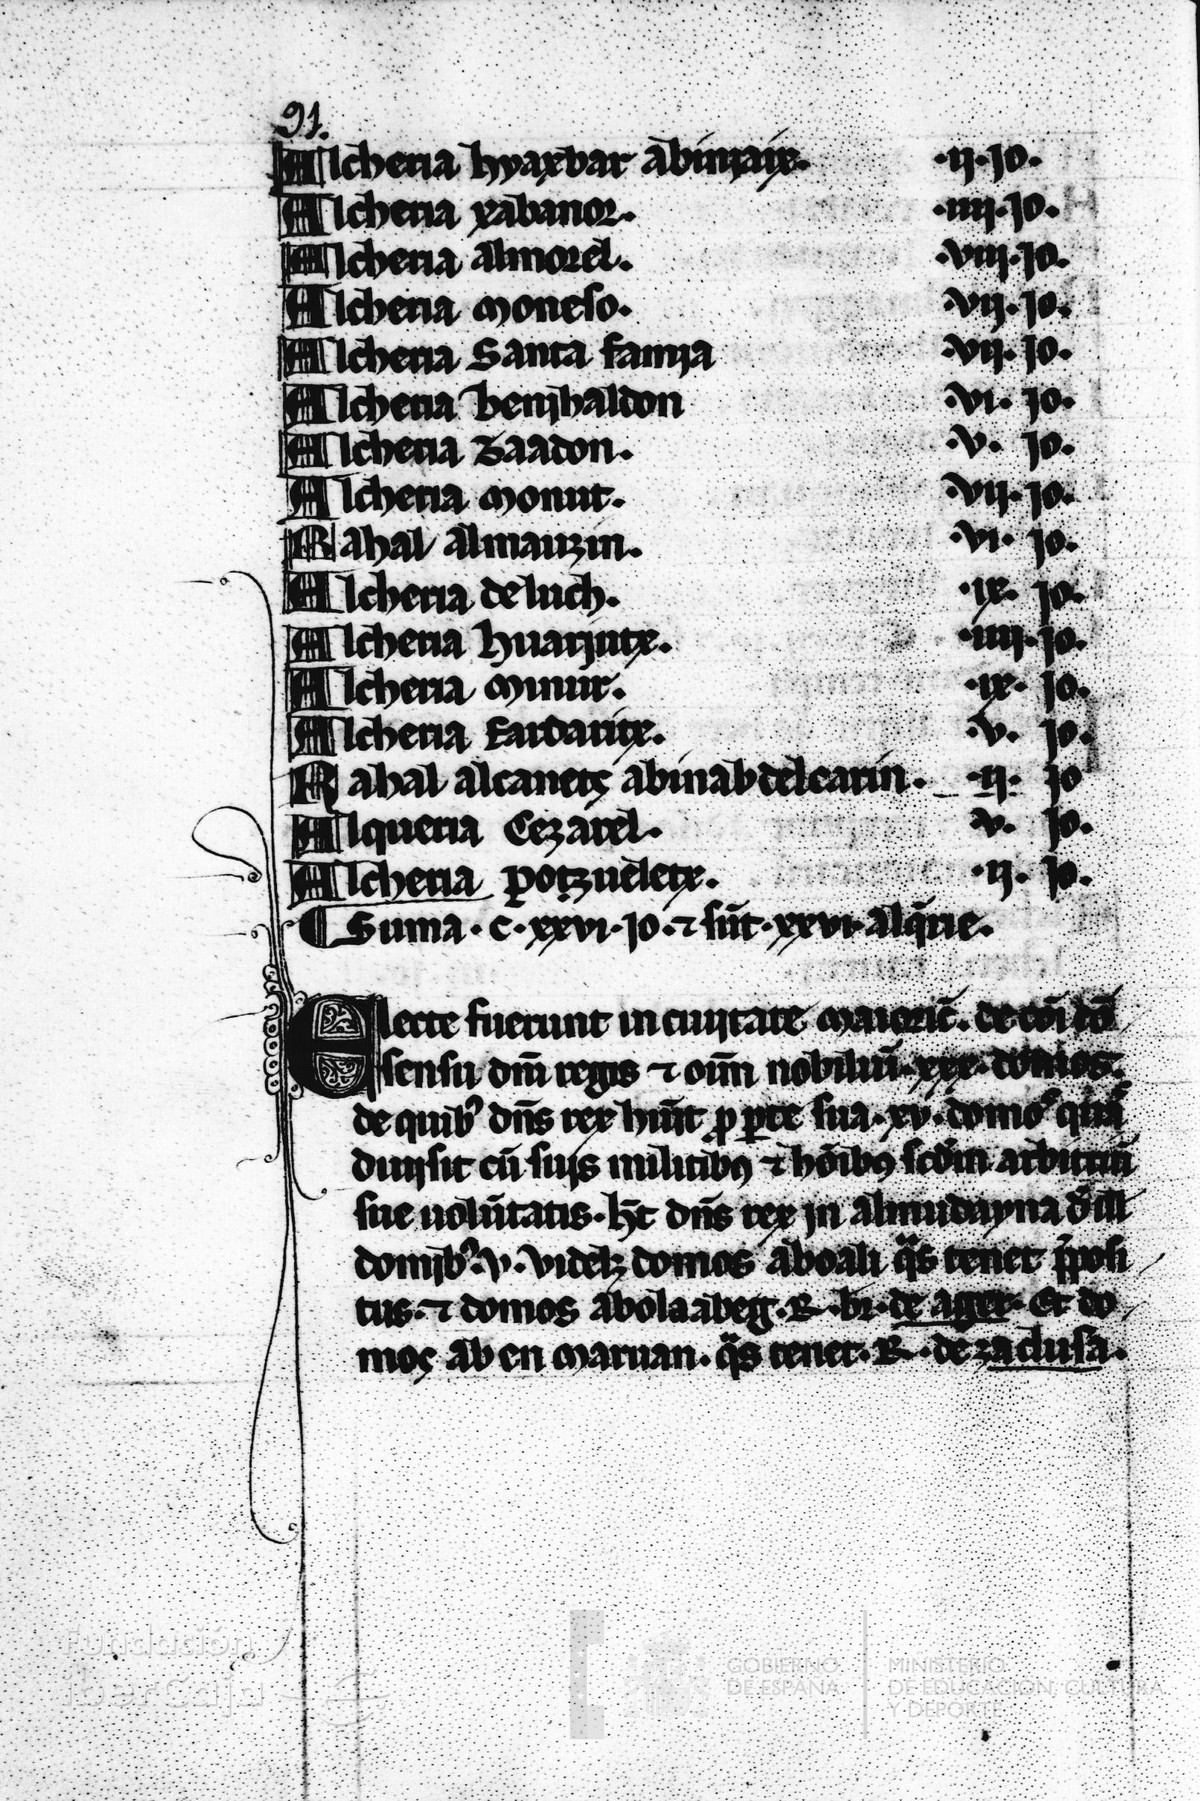 91.
Alcheria hyaxbar abinjaix. .ij.jo.
Alcheria xabanor. .iiij.jo.
Alcheria almorel. .viij.jo.
Alcheria moneso. .vij.jo.
Alcheria Santa famja .vij.jo.
Alcheria benjhaldon .vi.jo.
Alcheria zaadon. .v. jo.
Alcheria monut. .vij.jo.
Rahal almauzin. .vi. jo.
Alcheria de luch. .ix. jo.
Alcheria huarjntx. .iiij.jo.
Alcheria minur. .ix. jo.
Alcheria fardaritx. .v. jo.
Rahal alcanetç abinabdelcarin. .ij. jo
Alqueria Cezarel. .v. jo.
Alcheria potzueletx. .ij. jo.
Suma.c.xxvi.jo.⁊ sūt.xxvi.alq̄rie.
Electe fuerunt in ciujtate maioric̄. de cōi cō
sensu dn̄i regis ⁊ oīm nobiliū.xxx.domos.
de quibꝰ dn̄s rex hūit ꝓ ꝑte sua.xv.domos
diujsit cū sujs militibꝫ ⁊ hōibꝫ scd̄m arbitriū
sue uolūtatis.hēt dn̄s rex jn almudayna
domjbꝰ.v.videlꝫ domos aboali q̄s tenet p̄posi
tus.⁊ domos abolaabeg.R.br.de ager.Et do
moç ab en maruan.q̄s tenet.R.de zaclusa.
Fundación
iberCaja
GOBIERNO
DE ESPAÑA
MINISTERIO
DE EDUCACIÓN, CULTURA
Y DEPORTE